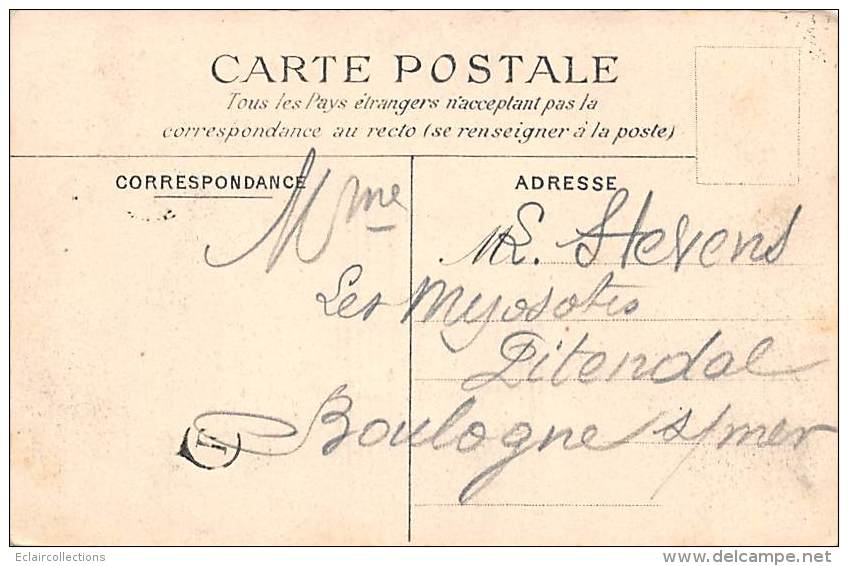 CARTE POSTALE
Tous les Pays étrangers n'acceptant pas la
correspondance au recto (se renseigner à la poste)
CORRESPONDANCE
ADRESSE
Mme E. Stevens
Les Myosotis
Pitendal
Boulogne s/mer
Eclaircollections
www.delcampe.net